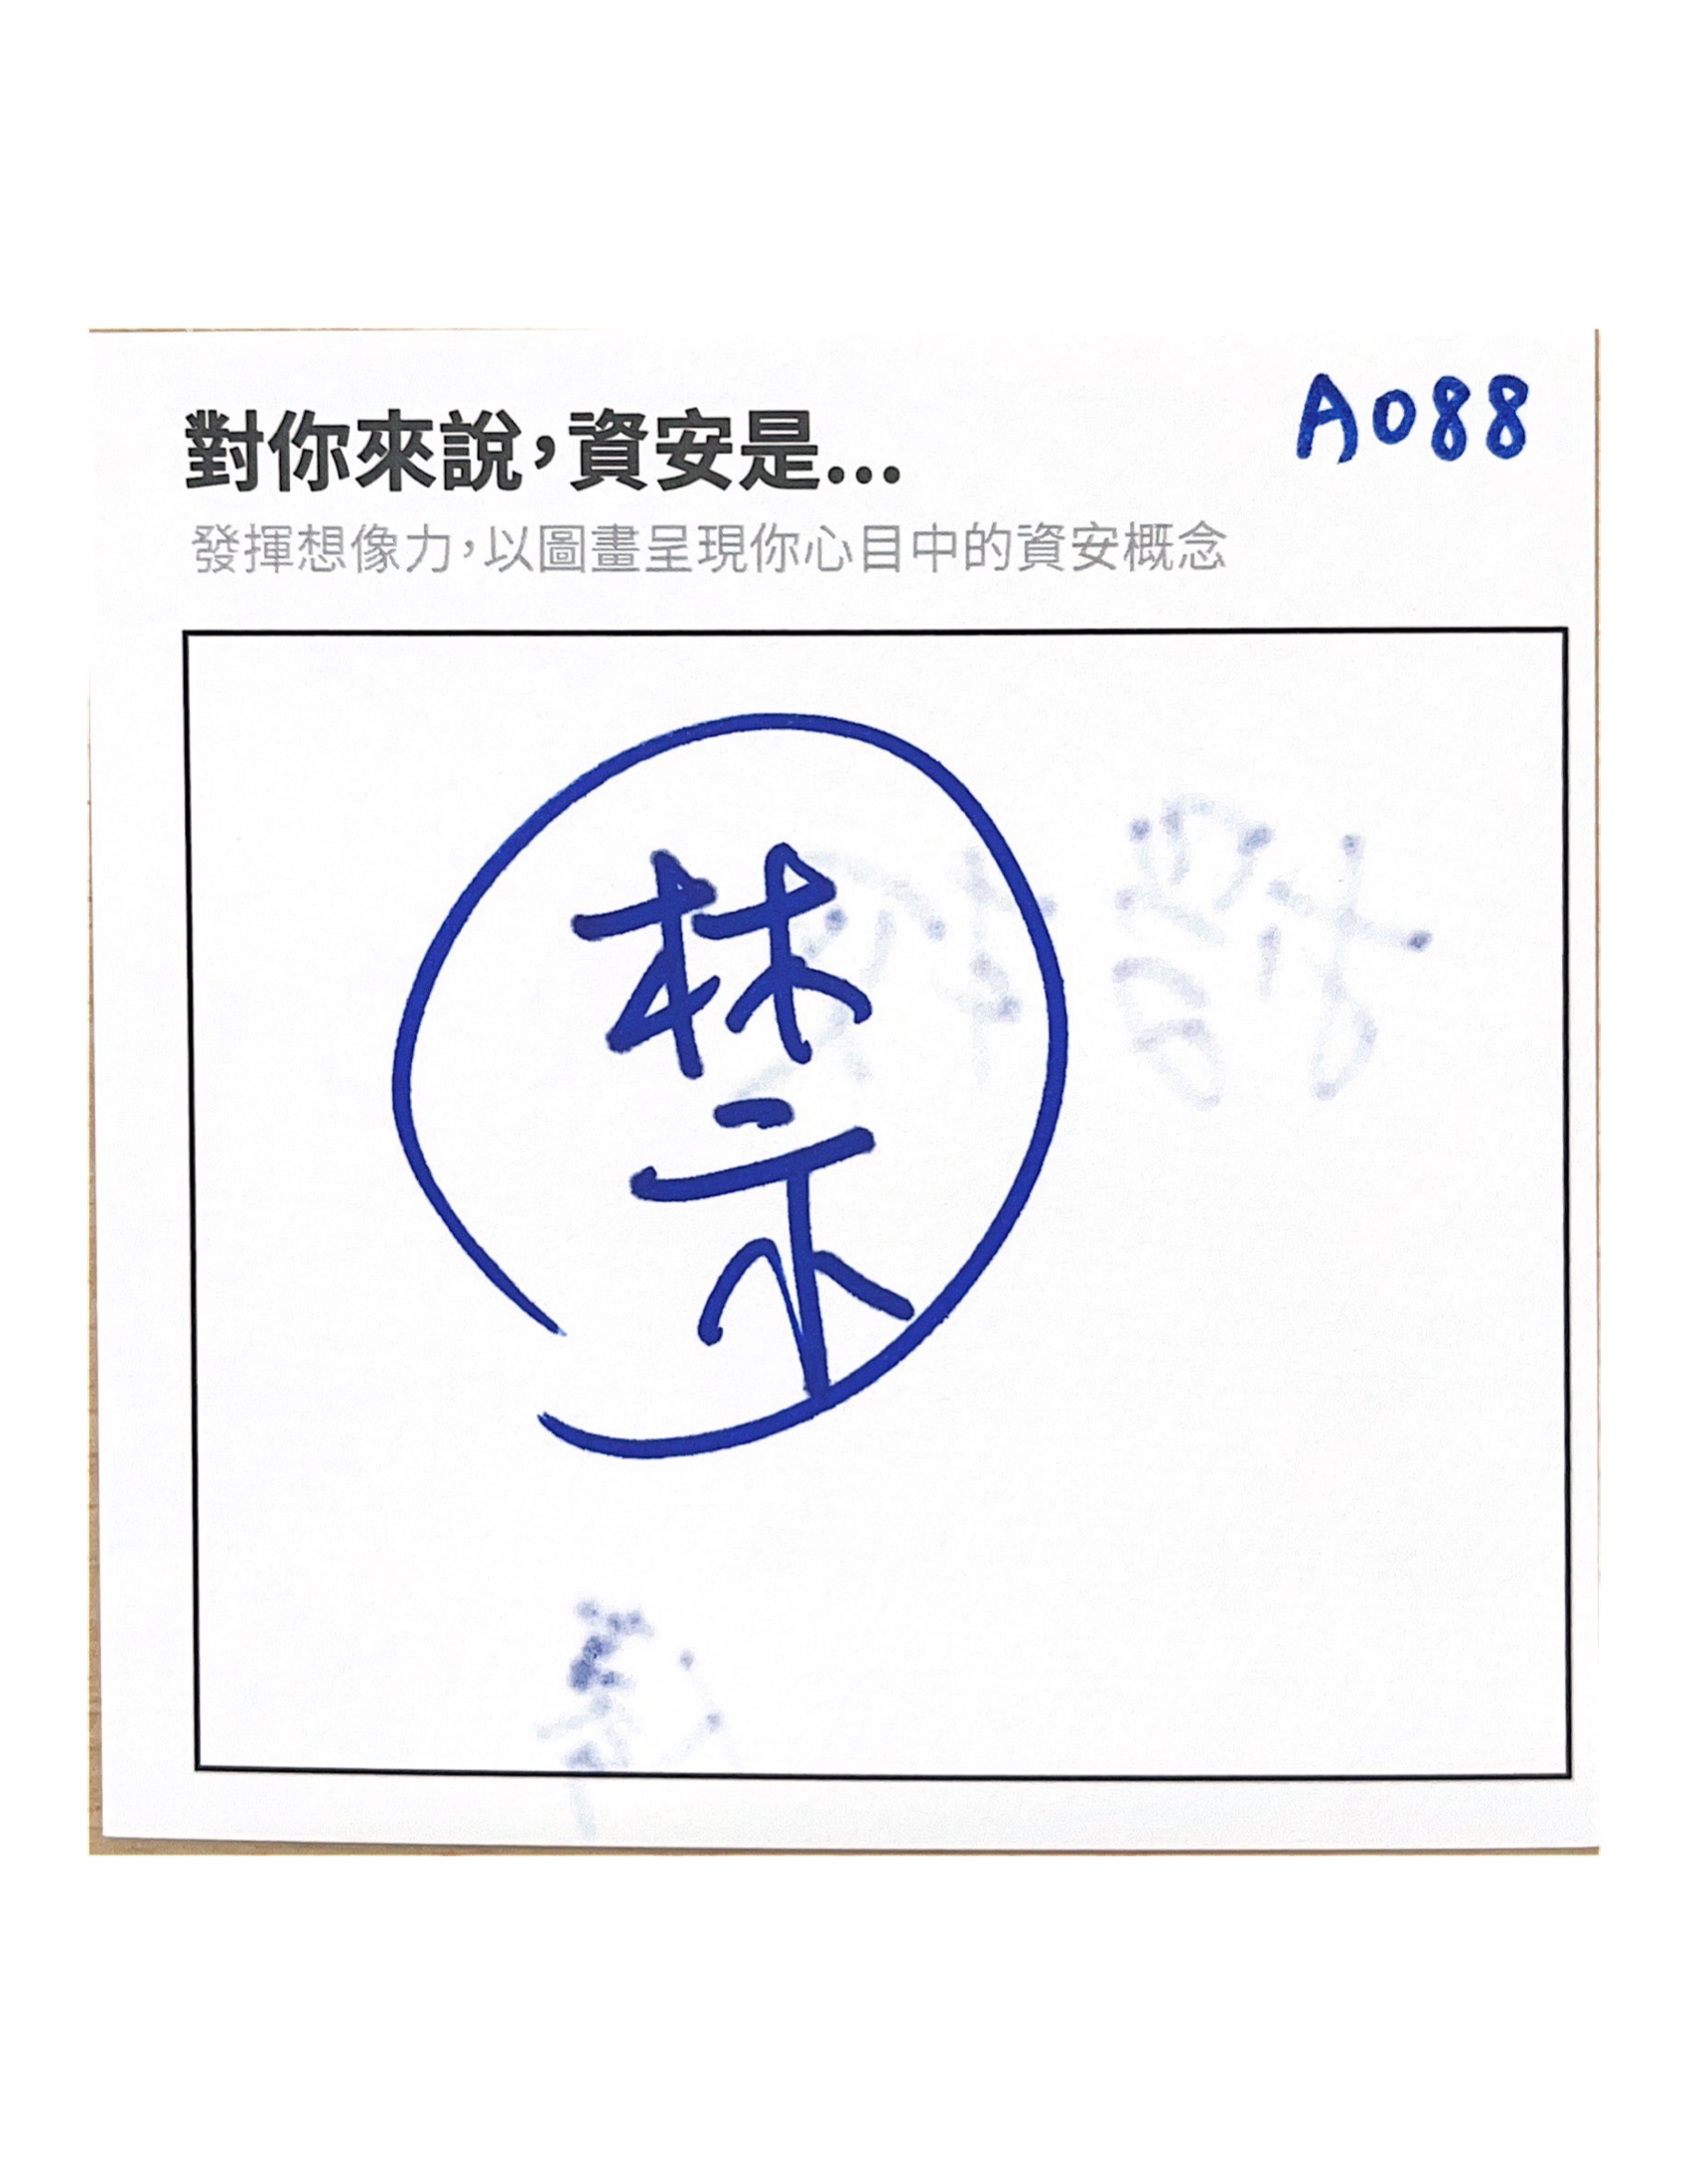 A088
對你來說,資安是...
發揮想像力,以圖畫呈現你心目中的資安概念
禁